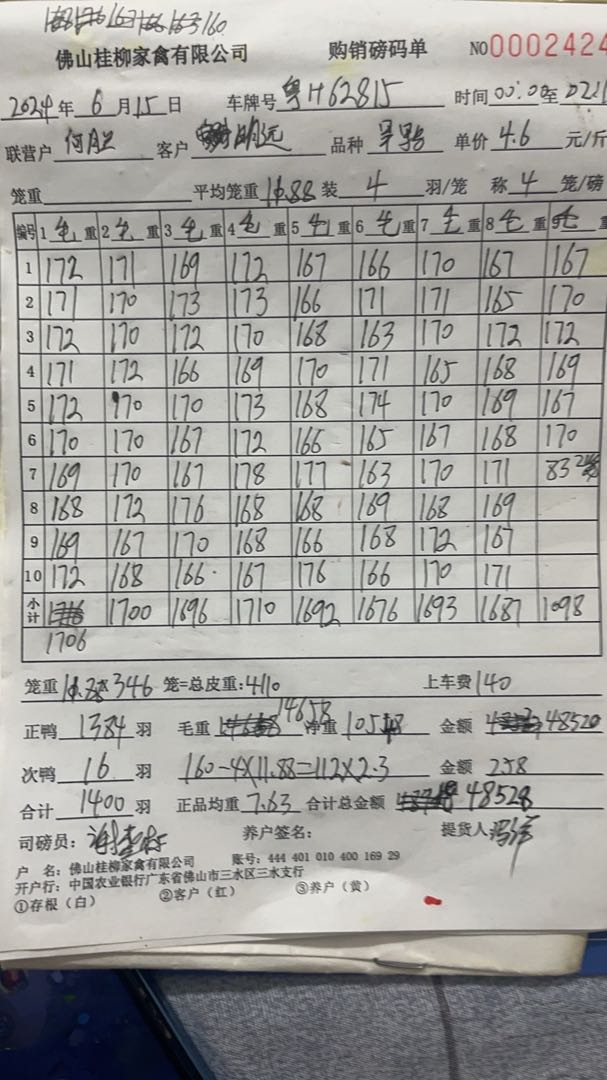 163 160
佛山桂柳家禽有限公司 购销磅码单 NO0002424
2024年 6月15日 车牌号 粤H62815 时间 00:00至
联营户 客户 明远 品种 单价 4.6 元/斤
笼重 平均笼重 11.88 装 4 羽/笼 称 4 笼/磅
编号 1 毛重 2 毛重 3 毛重 4 毛重 5 毛重 6 毛重 7 毛重 8 毛重 毛重
1 172 171 169 172 167 166 170 167 167
2 171 170 173 173 166 171 171 165 170
3 172 170 172 170 168 163 170 172 172
4 171 172 166 169 170 171 165 168 169
5 172 170 170 173 168 174 170 169 167
6 170 170 167 172 166 165 167 168 170
7 169 170 167 178 177 163 170 171 83 2笼
8 168 172 176 168 168 169 168 169
9 169 167 170 168 166 168 172 167
10 172 168 166 167 176 166 170 171
小计 1700 1696 1710 1692 1676 1693 1687 1098
1706
笼重 11.88×346 笼=总皮重:4110 上车费 140
正鸭 1384 羽 毛重 14658 净重 10548 金额 48520
次鸭 16 羽 160-4×11.88=112×2.3 金额 258
合计 1400 羽 正品均重 7.63 合计总金额 48528
司磅员: 养户签名: 提货人
户 名: 佛山桂柳家禽有限公司 账号: 444 401 010 400 169 29
开户行: 中国农业银行广东省佛山市三水区三水支行
①存根(白) ②客户(红) ③养户(黄)